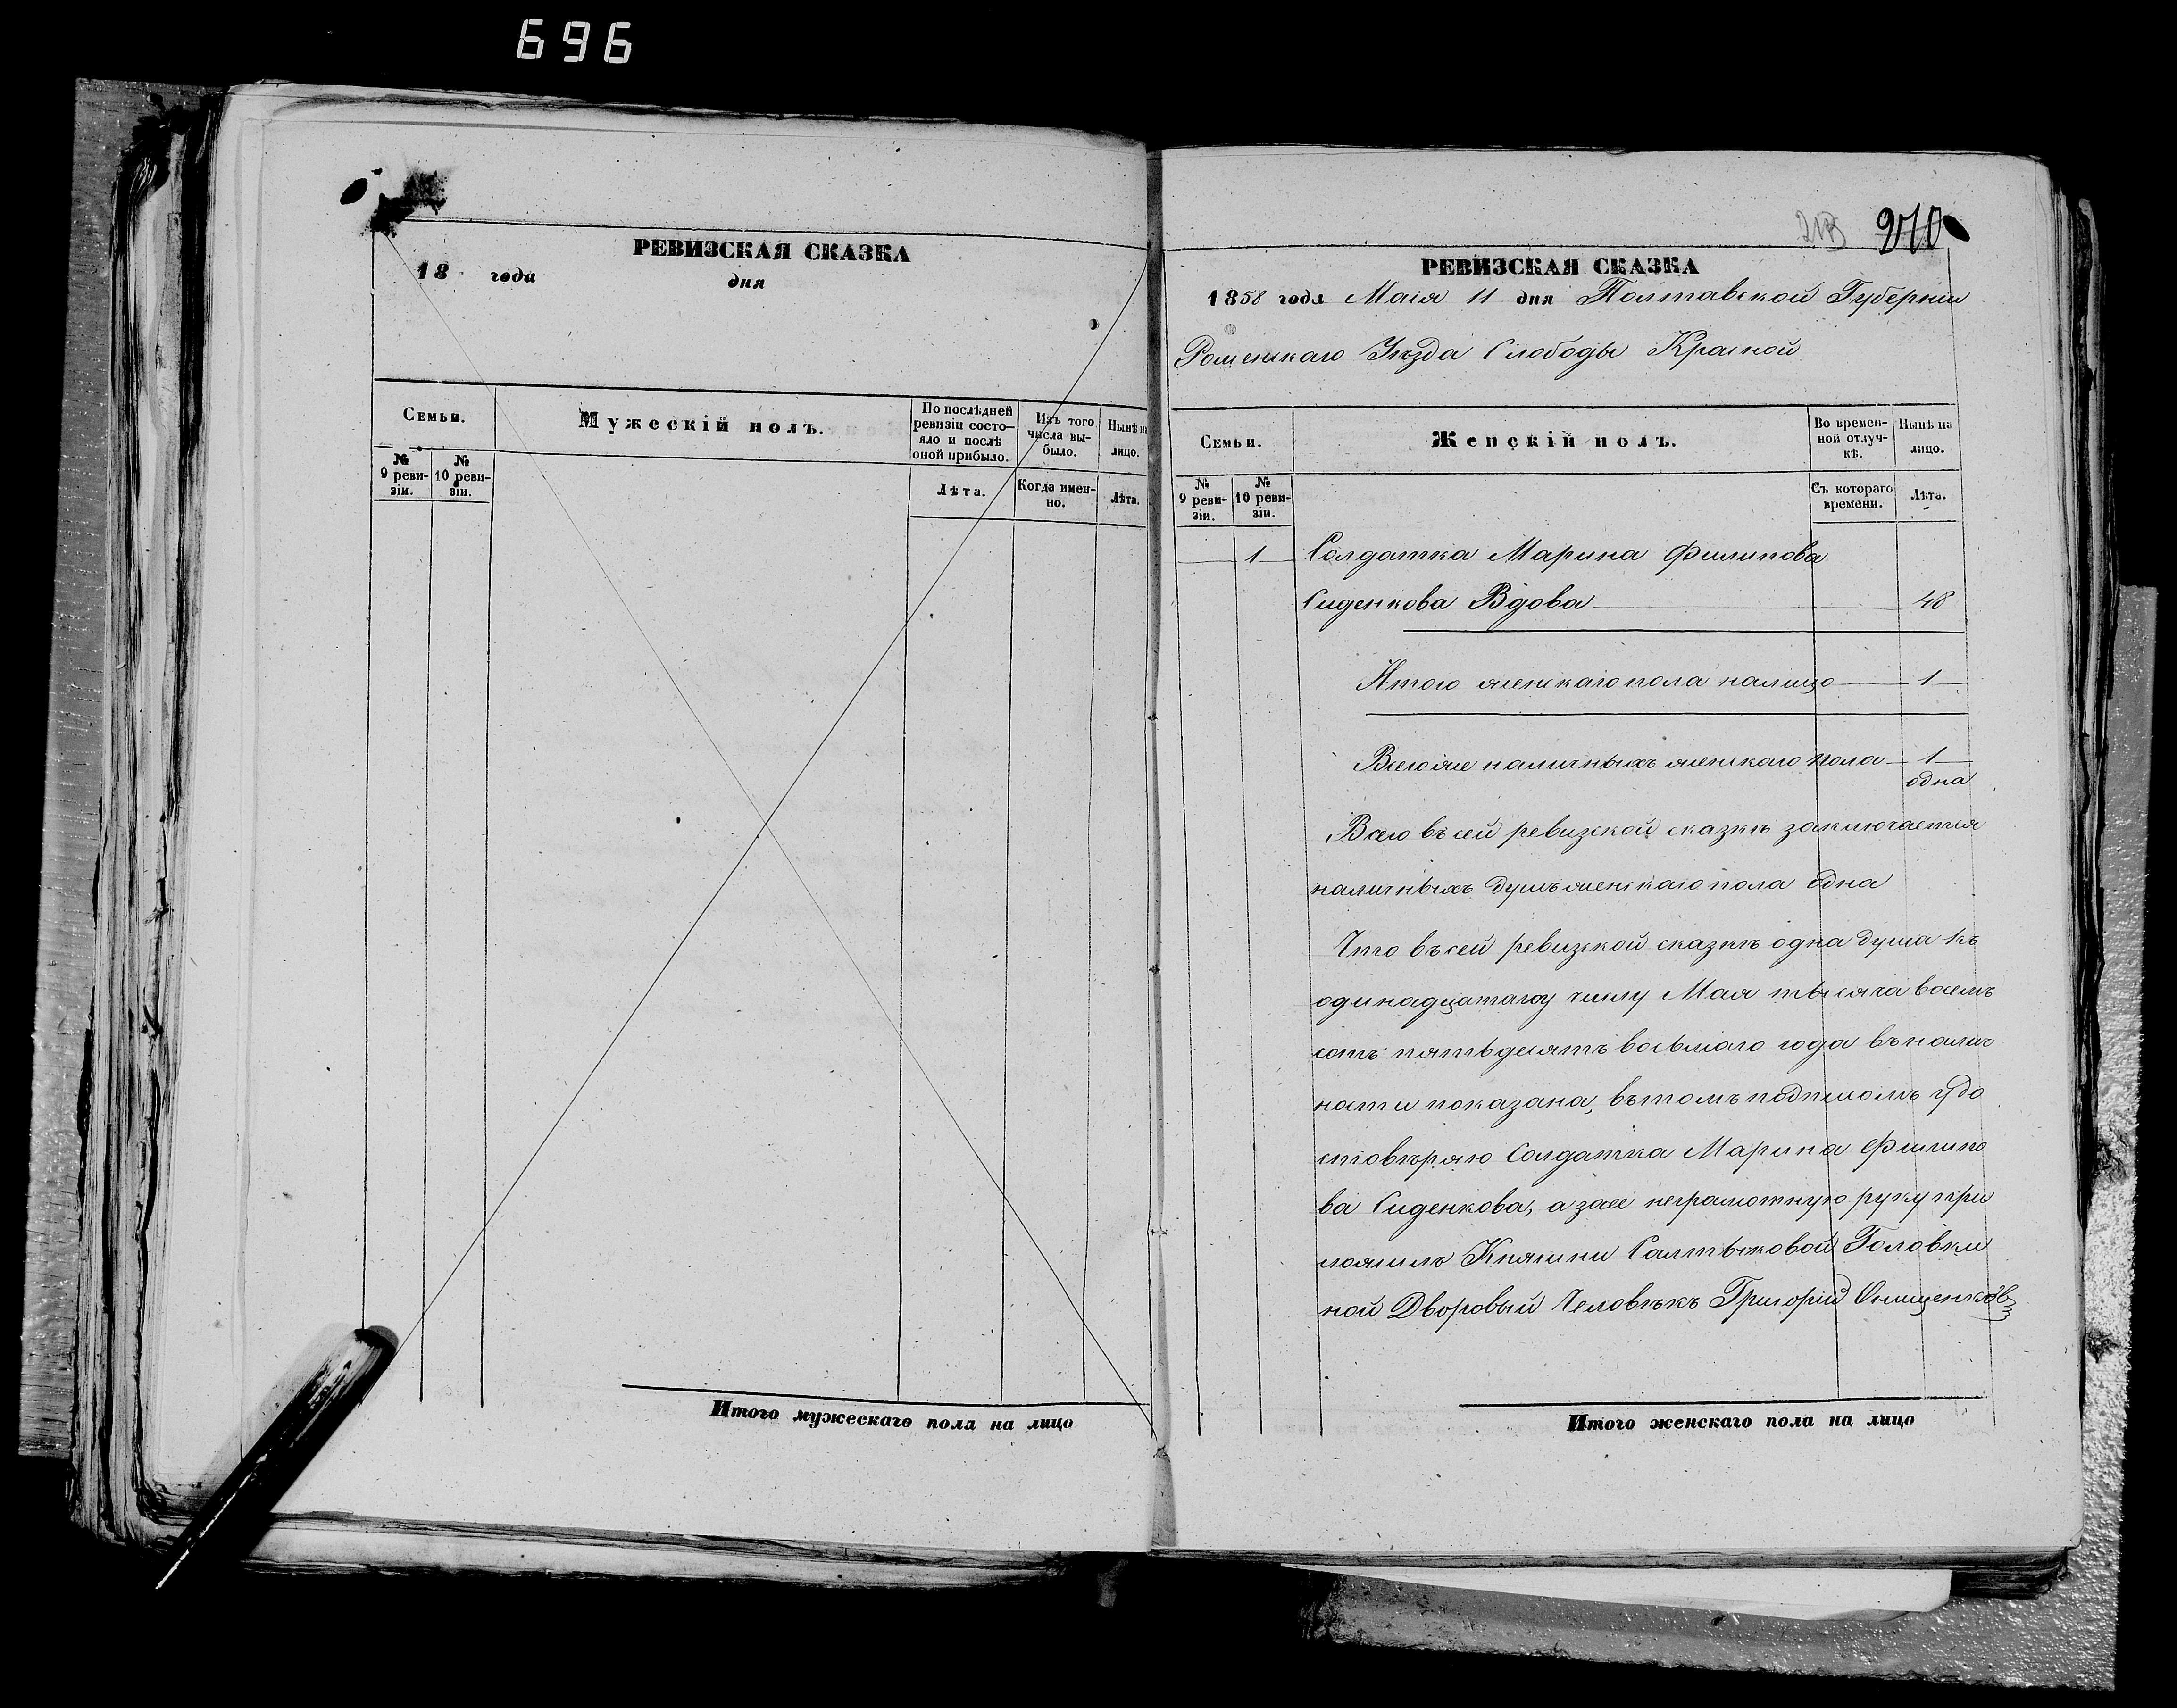 696
РЕВИЗСКАЯ СКАЗКА
18 года дня
Семьи.
Мужескій полъ.
По послѣдней ревизіи состояло и послѣ оной прибыло.
Изъ того числа выбыло.
Нынѣ на лицо.
№ 9 ревизіи.
№ 10 ревизіи.
Лѣта.
Когда именно.
Лѣта.
Итого мужескаго пола на лицо
270
РЕВИЗСКАЯ СКАЗКА
1858 года Маія 11 дня Полтавской Губерніи
Роменскаго Уѣзда Слободы Красной
Семьи.
Женскій полъ.
Во временной отлучкѣ.
Нынѣ на лицо.
№ 9 ревизіи.
№ 10 ревизіи.
Съ котораго времени.
Лѣта.
1 Солдатка Марина Филипова
Сиденкова Вдова 48
Итого женскаго пола налицо 1
Всего же наличныхъ женскаго пола 1
одна
Всего въ сей ревизской сказкѣ заключается
наличныхъ душъ женскаго пола одна
Что въ сей ревизской сказкѣ одна душа къ
одинадцатому числу Мая тысяча восемъ
сотъ пятьдесятъ восьмаго года въ налич
ности показана, въ томъ подписомъ удо
стовѣряю Солдатка Марина Филипо
ва Сиденкова, а за ее неграмотную руку при
ложилъ Княгини Салтыковой Головки
ной Дворовый Человѣкъ Григорій Онищенковъ
Итого женскаго пола на лицо